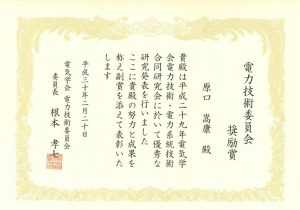 電力技術委員会
奨励賞
原口 嵩康 殿
貴殿は平成二十九年電気学
会電力技術・電力系統技術
合同研究会に於いて優秀な
研究発表を行いました
ここに貴殿の努力と成果を
称え副賞を添えて表彰いた
します
平成三十年二月二十日
電気学会 電力技術委員会
委員長 根本 孝七